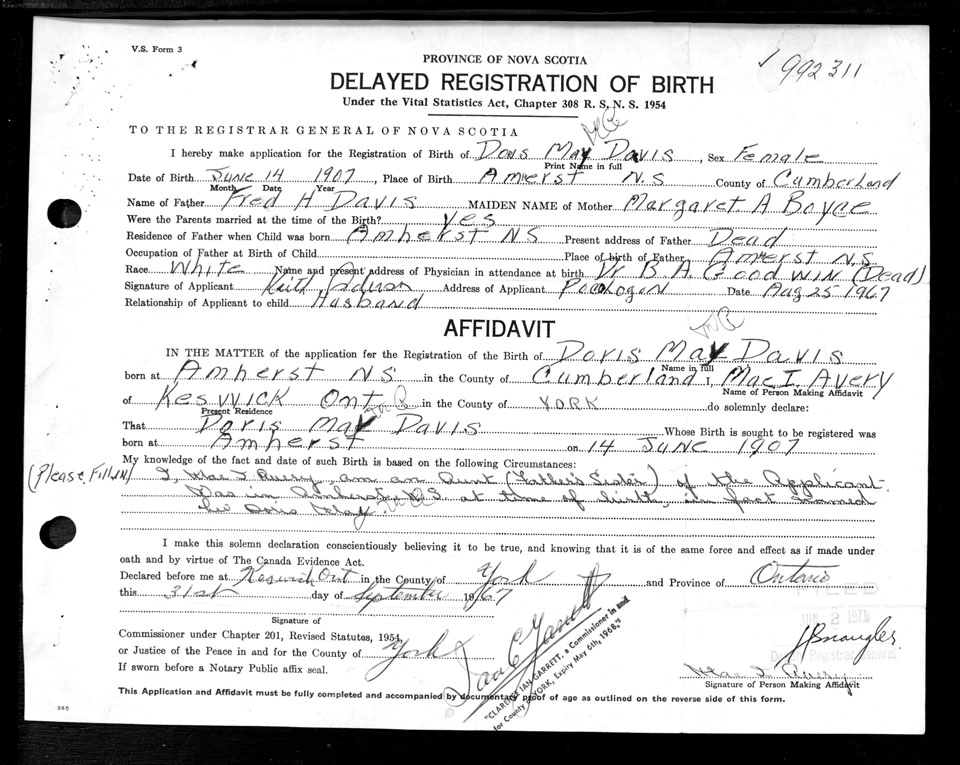 V.S. Form 3
PROVINCE OF NOVA SCOTIA
992311
DELAYED REGISTRATION OF BIRTH
Under the Vital Statistics Act, Chapter 308 R. S. N. S. 1954
TO THE REGISTRAR GENERAL OF NOVA SCOTIA
I hereby make application for the Registration of Birth of Doris May Davis, Sex Female
Print Name in full
Date of Birth June 14 1907, Place of Birth Amherst N.S County of Cumberland
Month Date Year
Name of Father Fred H Davis MAIDEN NAME of Mother Margaret A Boyce
Were the Parents married at the time of the Birth? Yes
Residence of Father when Child was born Amherst NS Present address of Father Dead
Occupation of Father at Birth of Child Place of birth of Father Amerst N.S.
Race White Name and present address of Physician in attendance at birth Dr B A. Goodwin (Dead)
Signature of Applicant Address of Applicant Pocologan Date Aug 25 1967
Relationship of Applicant to child Husband
AFFIDAVIT
IN THE MATTER of the application for the Registration of the Birth of Doris May Davis
Name in full
born at Amherst NS in the County of Cumberland I, Mae I. Avery
Name of Person Making Affidavit
of Keswick Ont in the County of YORK do solemnly declare:
Present Residence
That Doris May Davis Whose Birth is sought to be registered was
born at Amherst on 14 June 1907
My knowledge of the fact and date of such Birth is based on the following Circumstances:
(Please Fill in) I, Mae I Avery am an Aunt (Father's Sister) of the Applicant.
Was in Amherst N.S. at time of birth, in fact named
her Doris May
I make this solemn declaration conscientiously believing it to be true, and knowing that it is of the same force and effect as if made under
oath and by virtue of The Canada Evidence Act.
Declared before me at Keswick Ont in the County of York and Province of Ontario
this 31st day of September 1967
FILED
Signature of
Commissioner under Chapter 201, Revised Statutes, 1954,
or Justice of the Peace in and for the County of York
If sworn before a Notary Public affix seal.
Deputy Registrar General
Mae I. Avery
Signature of Person Making Affidavit
"CLARENCE IAN GARRETT, a Commissioner in and
for County of YORK, Expiry May 6th, 1968."
This Application and Affidavit must be fully completed and accompanied by documentary proof of age as outlined on the reverse side of this form.